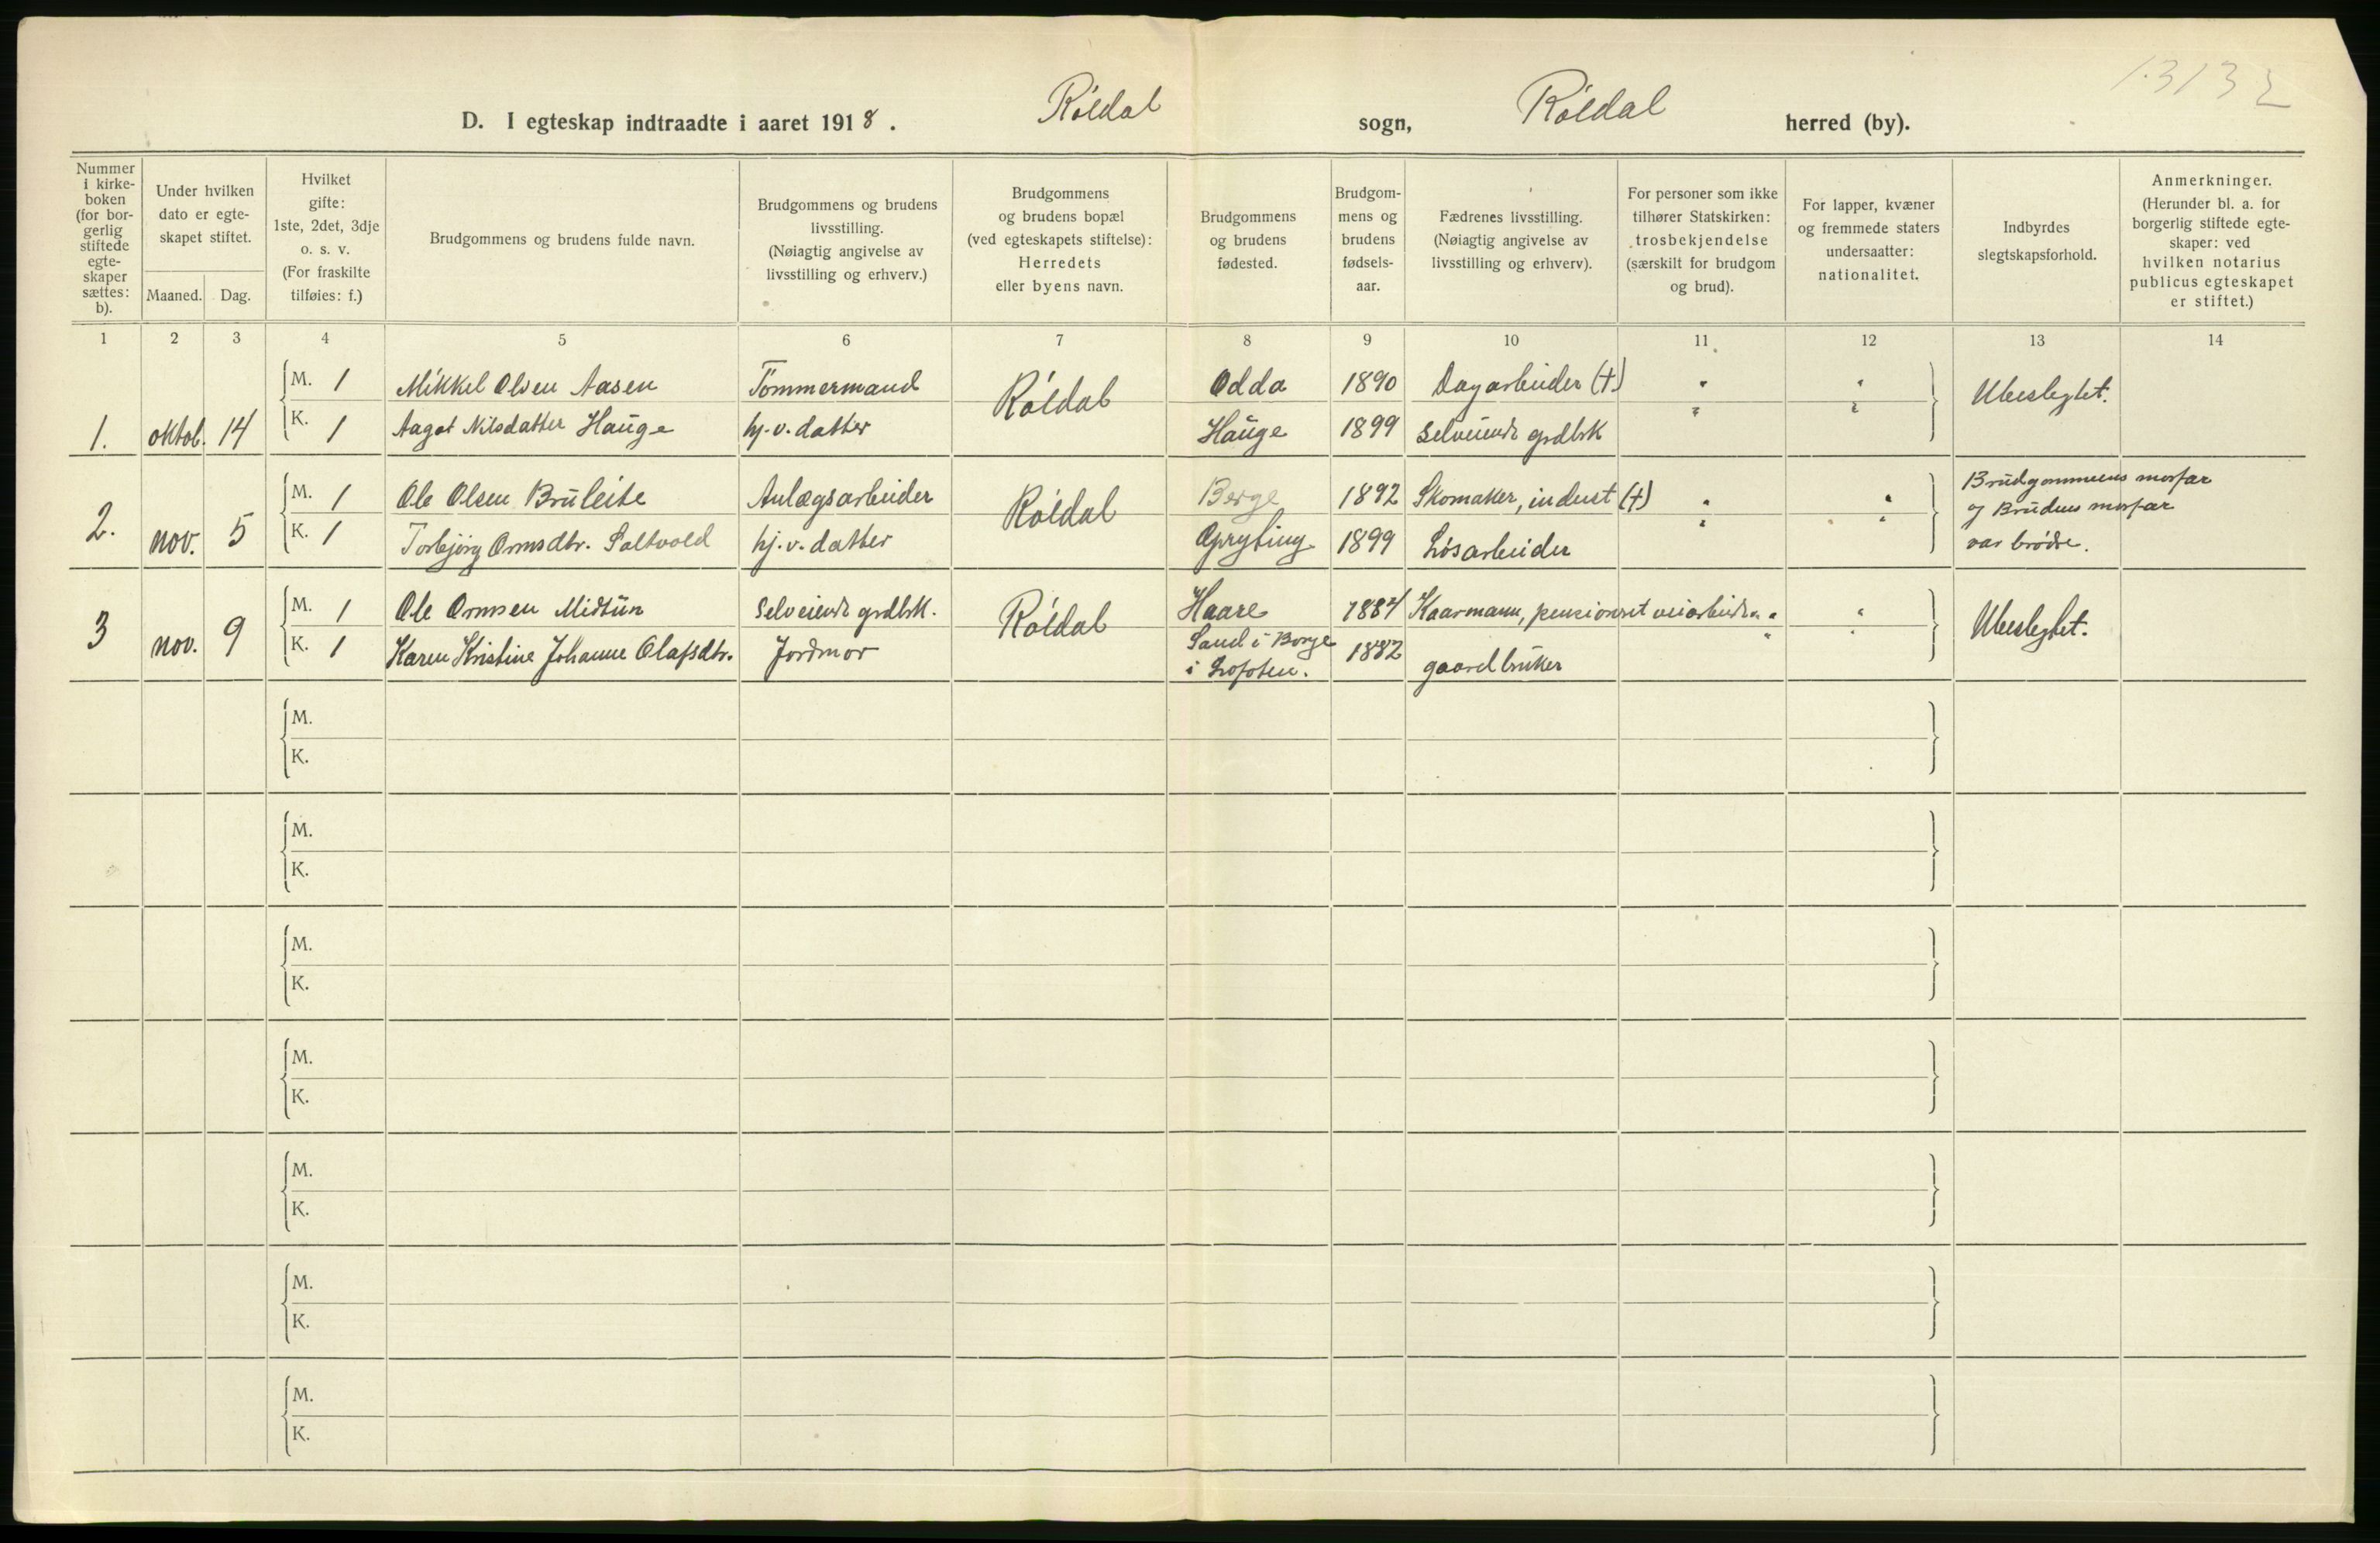 13132
D. I egteskap indtraadte i aaret 1918. Röldal sogn, Röldal herred (by).
Nummer i kirke-boken (for bor-gerlig stiftede egte-skaper sættes: b).
Under hvilken dato er egte-skapet stiftet.
Maaned. Dag.
Hvilket gifte: 1ste, 2det, 3dje o. s. v. (For fraskilte tilføies: f.)
Brudgommens og brudens fulde navn.
Brudgommens og brudens livsstilling. (Nøiagtig angivelse av livsstilling og erhverv.)
Brudgommens og brudens bopæl (ved egteskapets stiftelse): Herredets eller byens navn.
Brudgommens og brudens fødested.
Brudgom-mens og brudens fødsels-aar.
Fædrenes livsstilling. (Nøiagtig angivelse av livsstilling og erhverv).
For personer som ikke tilhører Statskirken: trosbekjendelse (særskilt for brudgom og brud).
For lapper, kvæner og fremmede staters undersaatter: nationalitet.
Indbyrdes slegtskapsforhold.
Anmerkninger. (Herunder bl. a. for borgerlig stiftede egte-skaper: ved hvilken notarius publicus egteskapet er stiftet.)
1 2 3 4 5 6 7 8 9 10 11 12 13 14
1. oktob. 14
M. 1 Mikkel Olsen Aasen Tömmermand Röldal Odda 1890 Dagarbeider (†) " " Ubeslegtet.
K. 1 Aagot Nilsdatter Hauge hj.v. datter Hauge 1899 selveiende grdbrk " "
2. nov. 5
M. 1 Ole Olsen Bruleite Anlægsarbeider Röldal Berge 1892 Skomaker, indust (†) " " Brudgommens morfar
og Brudens morfar
K. 1 Torbjörg Ormsdtr. Saltvold hj.v. datter 1899 Løsarbeider " " var brödre.
3 nov. 9
M. 1 Ole Ormsen Midtun Selveiende grdbrk. Röldal Haare 1884 Kaarmann, pensioneret veiarbeider " " Ubeslegtet.
K. 1 Karen Kristine Johanne Olafsdtr. Jordmor Sand i Borge
i Lofoten. 1882 gaardbruker " "
M.
K.
M.
K.
M.
K.
M.
K.
M.
K.
M.
K.
M.
K.